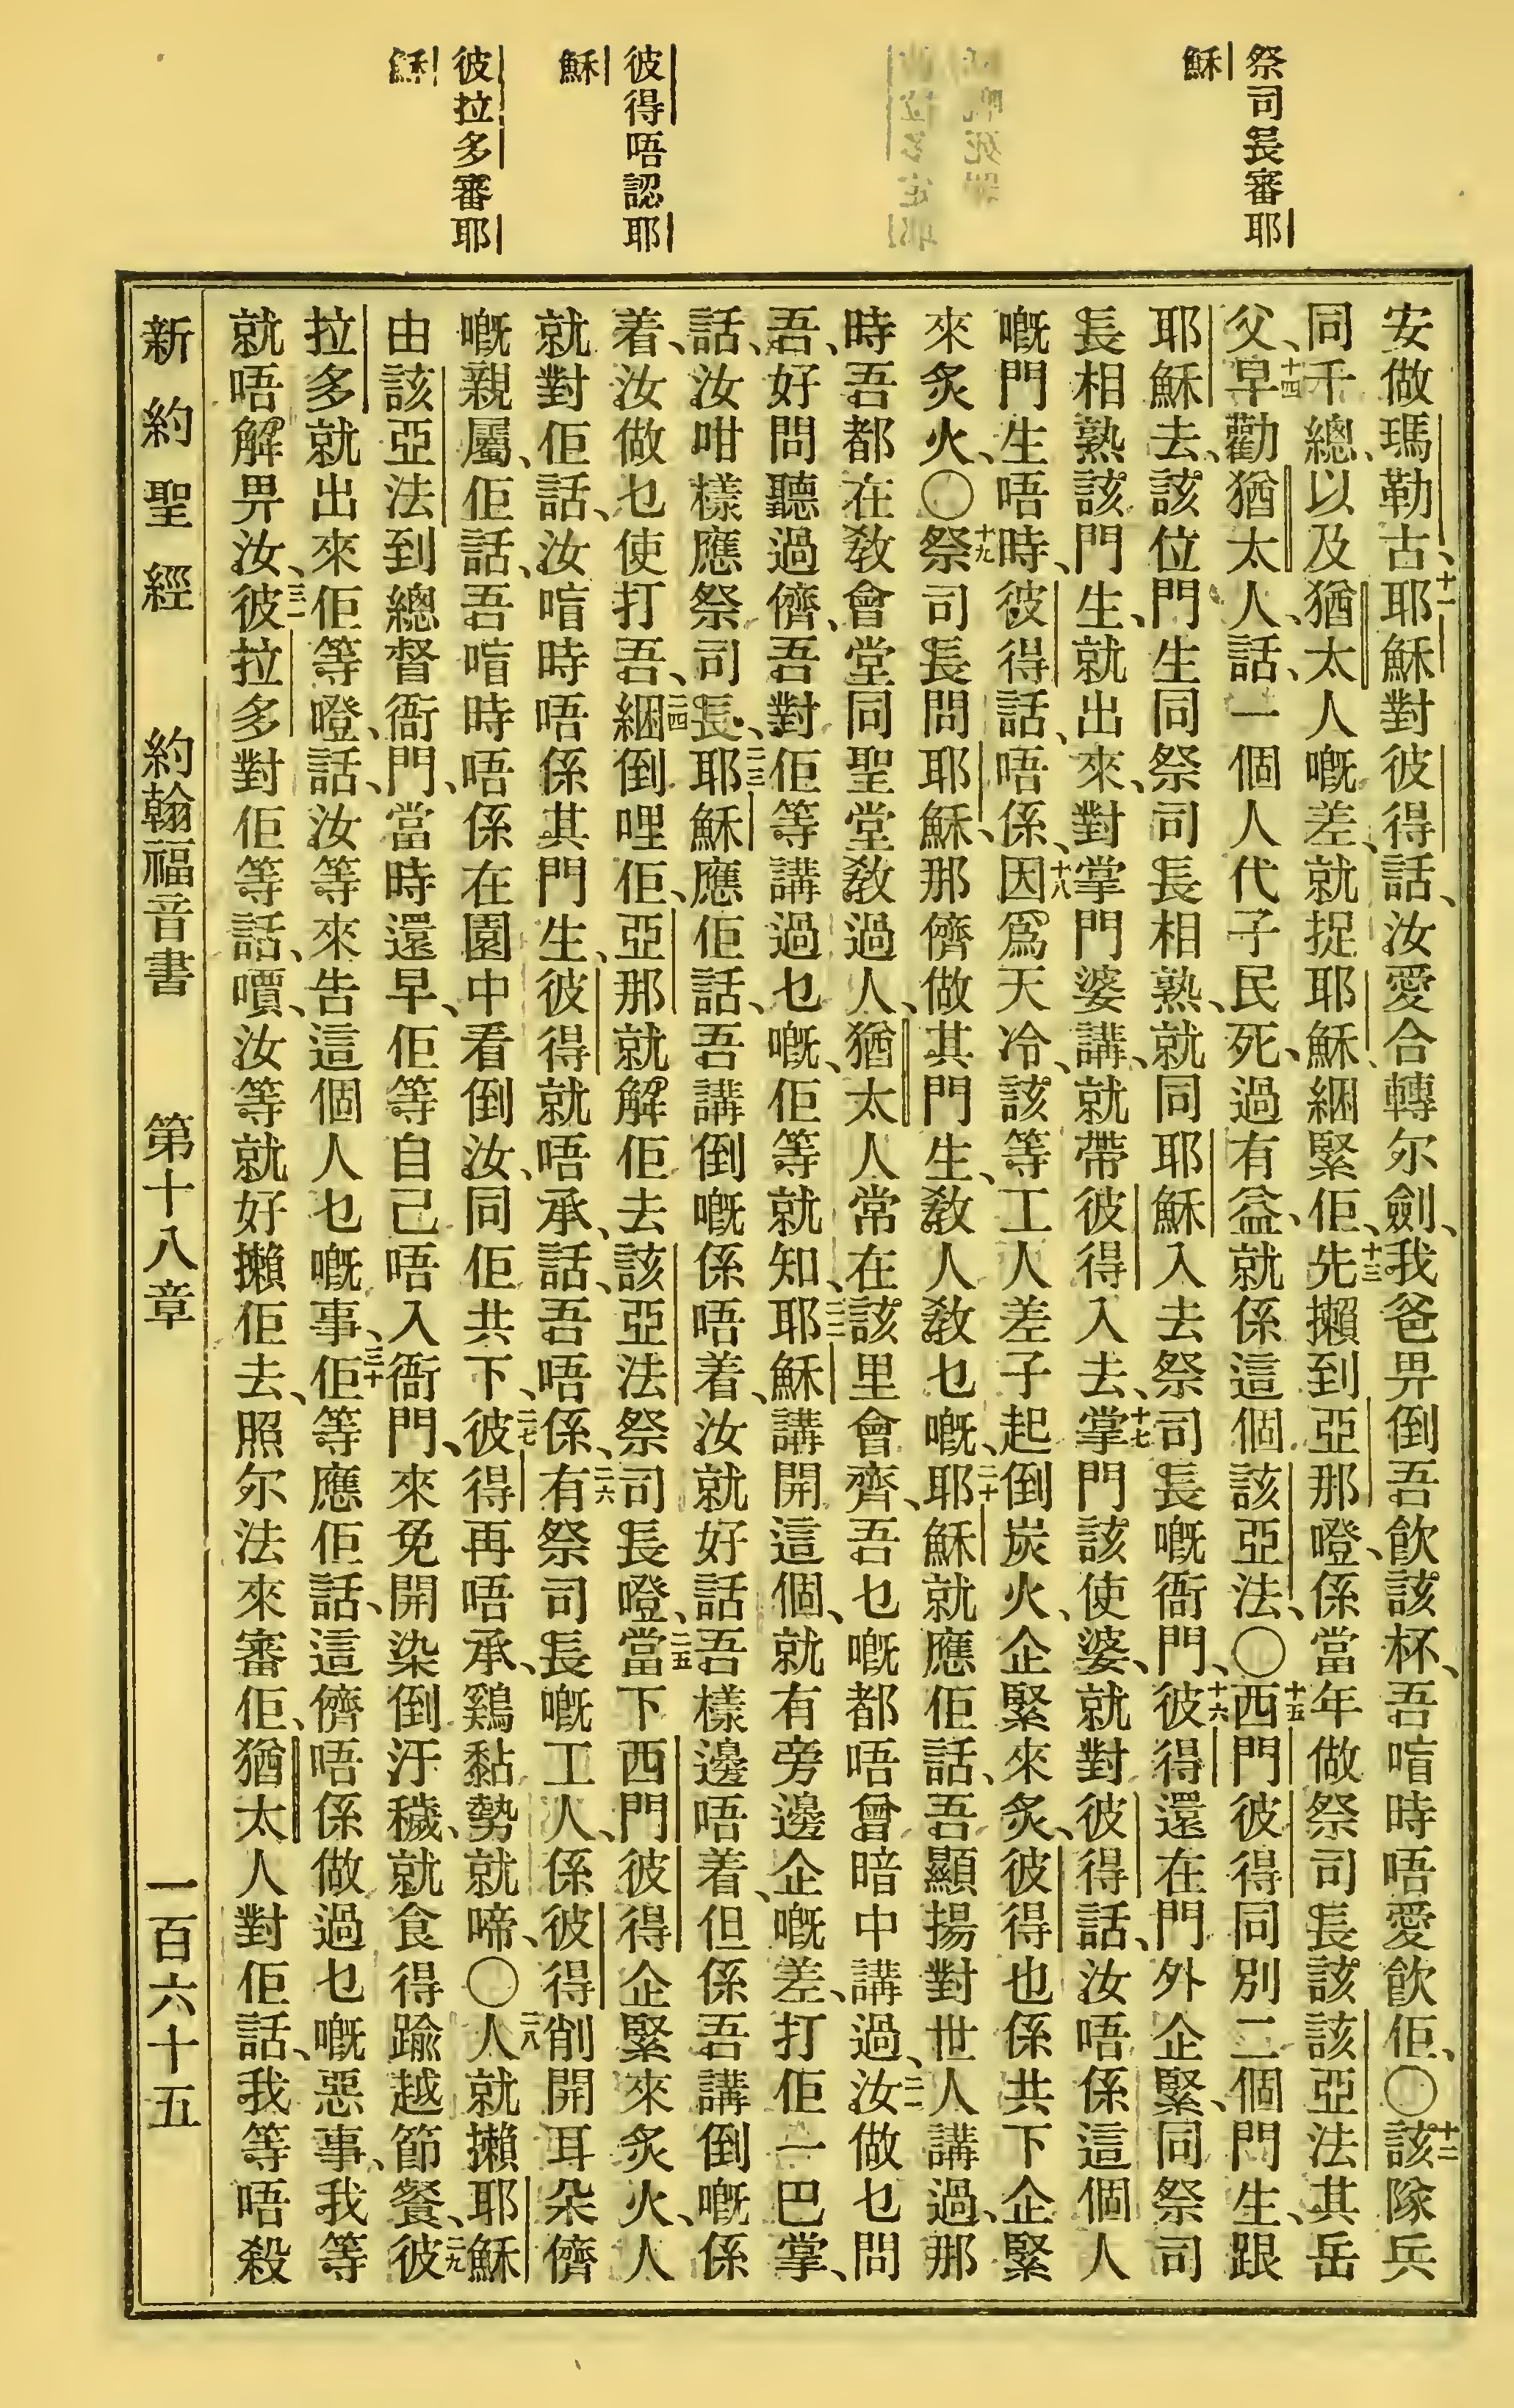 祭司長審耶
穌
彼得唔認耶
穌
彼拉多審耶
穌
安做瑪勒古、十一耶穌對彼得話、汝愛合轉尔劍、我爸畀倒吾飮該杯、吾喧時唔愛飮佢、〇十二該隊兵
同千總、以及猶太人嘅差、就捉耶穌、綑緊佢、十三先攋到亞那噔、係當年做祭司長該該亞法其岳
父、十四早勸猶太人、話、一個人代子民死、過有益、就係這個該亞法、〇十五西門彼得同別二個門生、跟
耶穌去、該位門生同祭司長相熟、就同耶穌入去祭司長嘅衙門、十六彼得還在門外企緊、同祭司
長相熟該門生、就出來、對掌門婆講、就帶彼得入去、十七掌門該使婆、就對彼得話、汝唔係這個人
嘅門生唔時、彼得話、唔係、十八因爲天冷、該等工人差子起倒炭火、企緊來炙、彼得也係共下企緊
來炙火、〇十九祭司長問耶穌、那儕做其門生、敎人敎乜嘅、二十耶穌就應佢話、吾顯揚對世人講過、那
時吾都在敎會堂同聖堂敎過人、猶太人常在該里會齊、吾乜嘅都唔曾暗中講過、二一汝做乜問
吾、好問聽過儕、吾對佢等講過乜嘅、佢等就知、二二耶穌講開這個、就有旁邊企嘅差、打佢一巴掌、
話、汝咁樣應祭司長、二三耶穌應佢話、吾講倒嘅係唔着、汝就好話吾樣邊唔着、但係吾講倒嘅係
着、汝做乜使打吾、二四綑倒哩佢、亞那就解佢去該亞法祭司長噔、二五當下西門彼得企緊來炙火、人
就對佢話、汝喧時唔係其門生、彼得就唔承、話、吾唔係、二六有祭司長嘅工人、係彼得削開耳朵儕
嘅親屬、佢話、吾喧時唔係在園中看倒汝、同佢共下、二七彼得再唔承、鷄黏勢就啼、〇二八人就攋耶穌
由該亞法到總督衙門、當時還早、佢等自己唔入衙門、來免開染倒汙穢、就食得踰越節餐、二九彼
拉多就出來佢等噔、話、汝等來告這個人乜嘅事、三十佢等應佢話、這儕唔係做過乜嘅惡事、我等
就唔解畀汝、三一彼拉多對佢等話、嘪、汝等就好攋佢去、照尔法來審佢、猶太人對佢話、我等唔殺
新約聖經　約翰福音書　第十八章　一百六十五